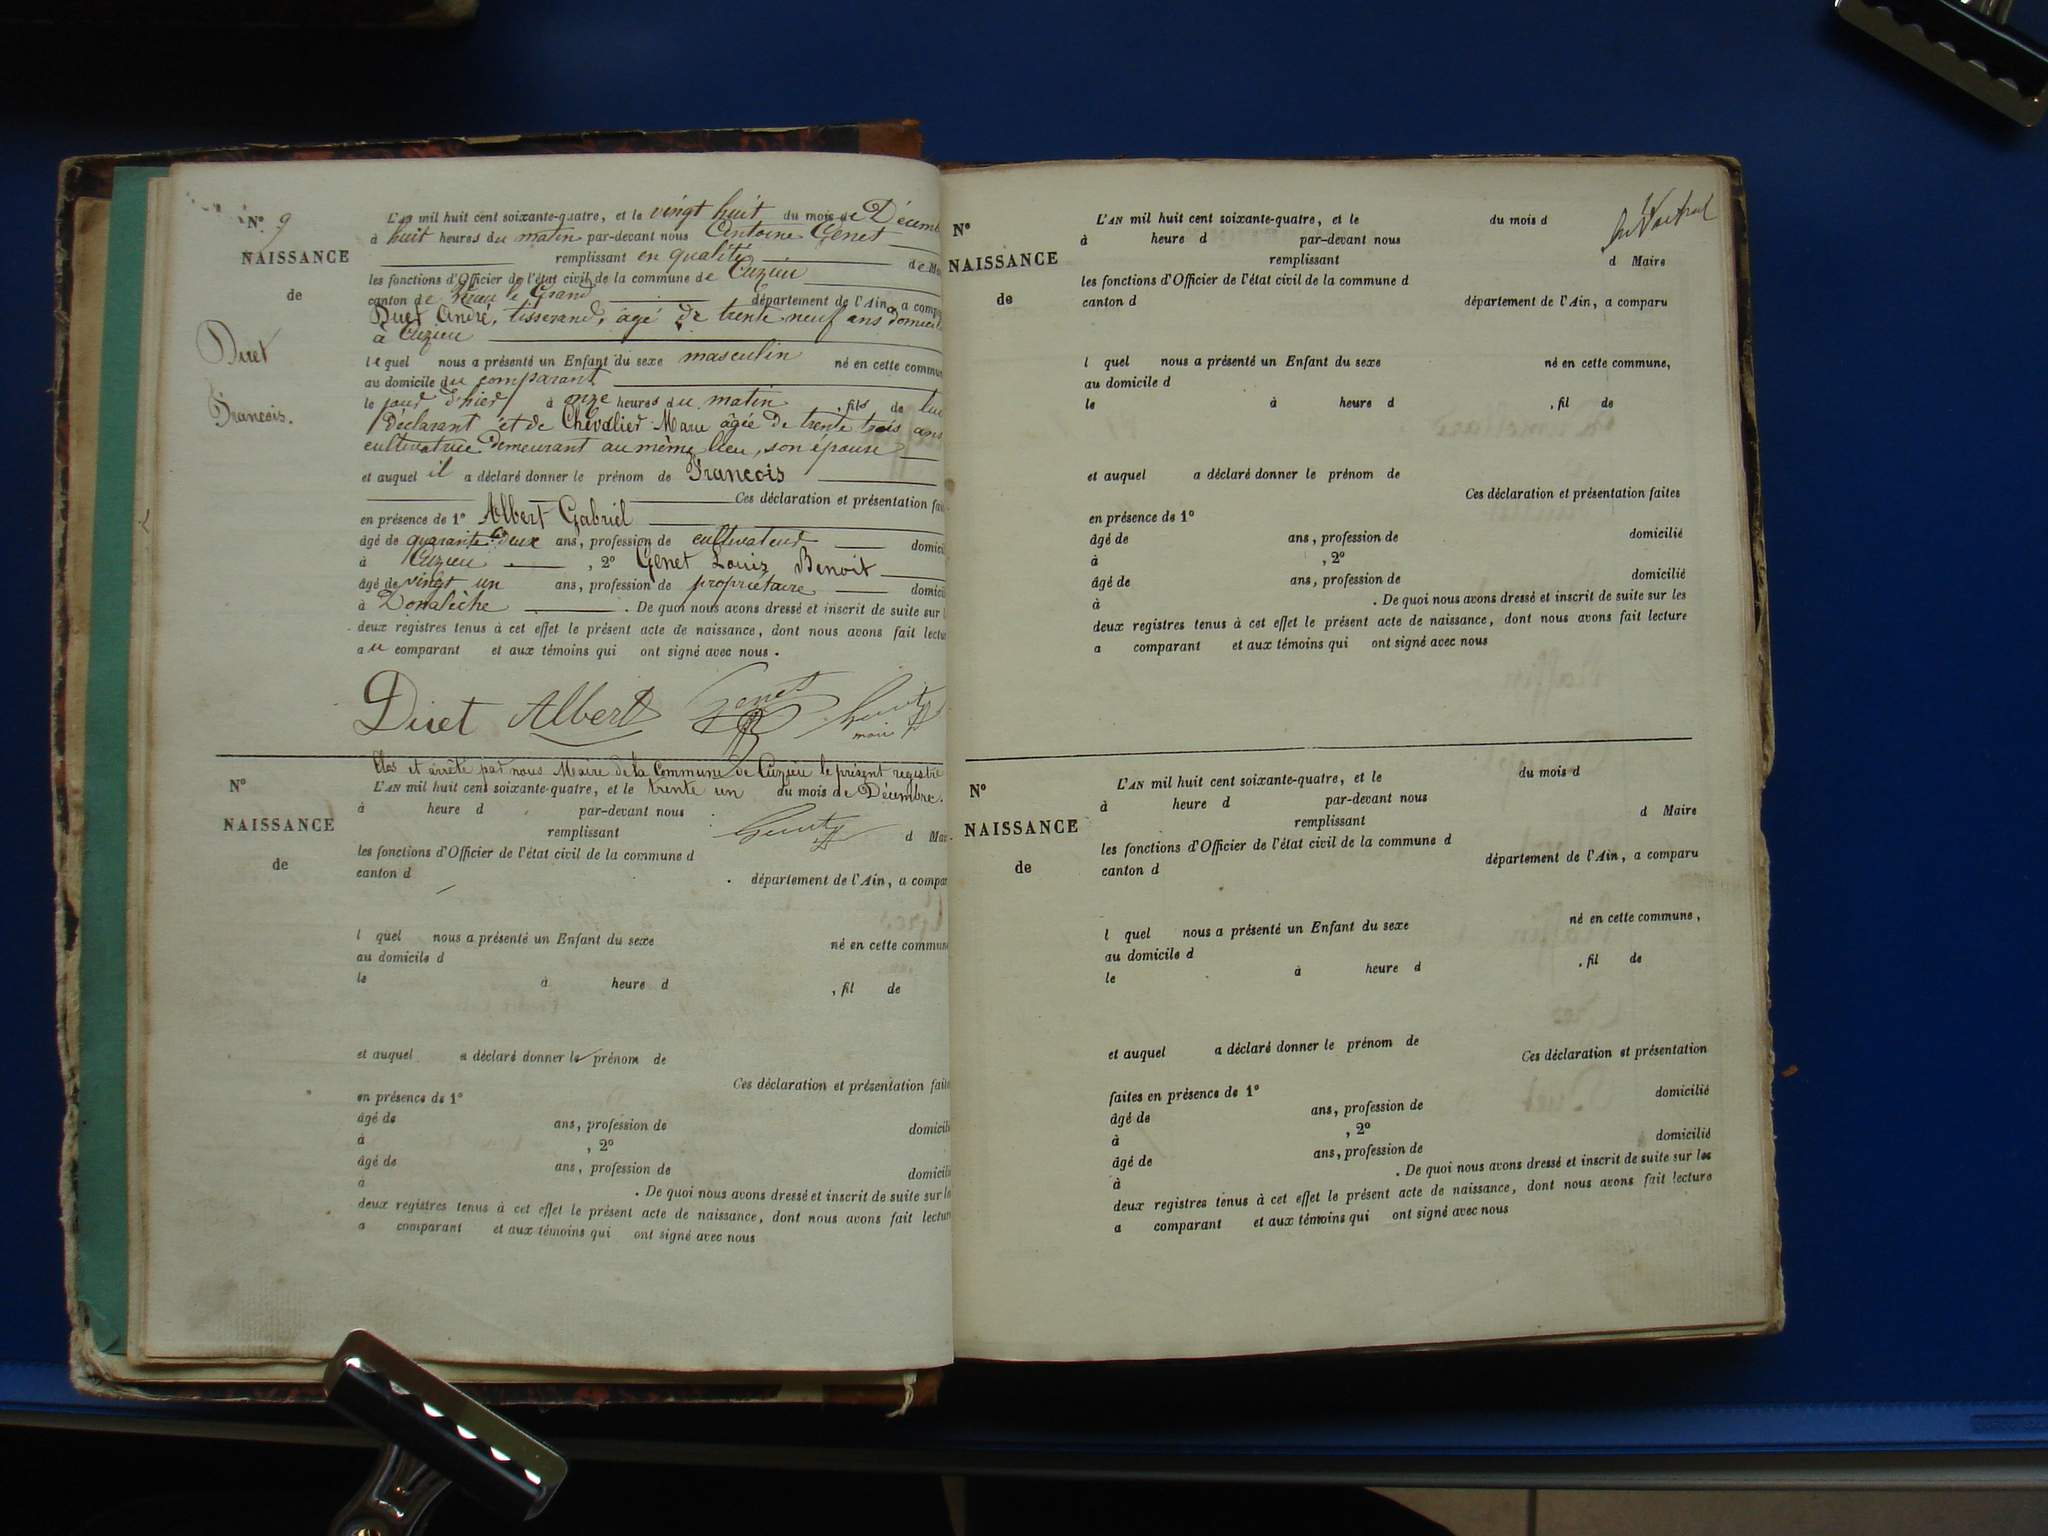 N° 9
NAISSANCE
de
Duet
François.
L'AN mil huit cent soixante-quatre, et le vingt huit du mois de Décemb
à huit heures du matin par-devant nous Antoine Genet
remplissant en qualité de Ma
les fonctions d'Officier de l'état civil de la commune de Cuzieu
canton de Virieu le Grand département de l'Ain, a compa
Duet André, tisserand, âgé de trente neuf ans domicil
à Cuzieu
lequel nous a présenté un Enfant du sexe masculin né en cette commun
au domicile du comparant
le jour d'hier à onze heures du matin, fils de lui
Déclarant et de Chevalier Marie âgée de trente trois ans
cultivatrice demeurant au même lieu, son épouse
et auquel il a déclaré donner le prénom de François
Ces déclaration et présentation fai
en présence de 1° Albert Gabriel
âgé de quarante deux ans, profession de cultivateur domicil
à Cuzieu, 2° Genet Louis Benoit
âgé de vingt un ans, profession de propriétaire domici
à . De quoi nous avons dressé et inscrit de suite sur l
deux registres tenus à cet effet le présent acte de naissance, dont nous avons fait lectu
au comparant et aux témoins qui ont signé avec nous.
Duet Albert Genet
maire
Clos et arrêté par nous Maire de la Commune de Cuzieu le présent registre
N°
NAISSANCE
de
L'AN mil huit cent soixante-quatre, et le trente un du mois de Décembre.
à heure d par-devant nous
remplissant d Mai
les fonctions d'Officier de l'état civil de la commune d
canton d département de l'Ain, a compar
l quel nous a présenté un Enfant du sexe né en cette commune
au domicile d
le à heure d , fil de
et auquel a déclaré donner le prénom de
Ces déclaration et présentation faite
en présence de 1°
âgé de ans, profession de domicilié
à , 2°
âgé de ans, profession de domicilié
à . De quoi nous avons dressé et inscrit de suite sur le
deux registres tenus à cet effet le présent acte de naissance, dont nous avons fait lecture
a comparant et aux témoins qui ont signé avec nous
N°
NAISSANCE
de
L'AN mil huit cent soixante-quatre, et le du mois d
à heure d par-devant nous
remplissant d Maire
les fonctions d'Officier de l'état civil de la commune d
canton d département de l'Ain, a comparu
l quel nous a présenté un Enfant du sexe né en cette commune,
au domicile d
le à heure d , fil de
et auquel a déclaré donner le prénom de
Ces déclaration et présentation faites
en présence de 1°
âgé de ans, profession de domicilié
à , 2°
âgé de ans, profession de domicilié
à . De quoi nous avons dressé et inscrit de suite sur les
deux registres tenus à cet effet le présent acte de naissance, dont nous avons fait lecture
a comparant et aux témoins qui ont signé avec nous
N°
NAISSANCE
de
L'AN mil huit cent soixante-quatre, et le du mois d
à heure d par-devant nous
remplissant d Maire
les fonctions d'Officier de l'état civil de la commune d
canton d département de l'Ain, a comparu
l quel nous a présenté un Enfant du sexe né en cette commune,
au domicile d
le à heure d , fil de
et auquel a déclaré donner le prénom de
Ces déclaration et présentation
faites en présence de 1°
âgé de ans, profession de domicilié
à , 2°
âgé de ans, profession de domicilié
à . De quoi nous avons dressé et inscrit de suite sur les
deux registres tenus à cet effet le présent acte de naissance, dont nous avons fait lecture
a comparant et aux témoins qui ont signé avec nous